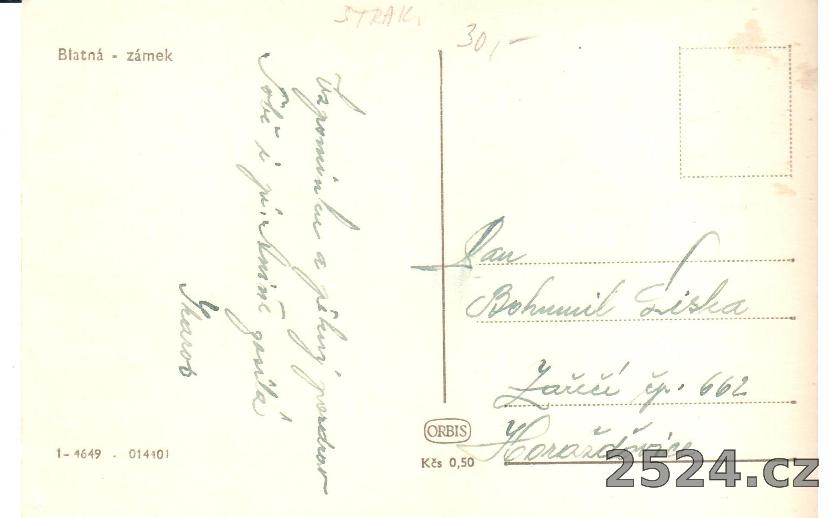 STRAK.
30,-
Blatná - zámek
Vzpomínku a pěkný pozdrav
Tobě i příteli posílá
Pan
Bohumil Liška
Zaříčí čp. 662
Horažďovice
ORBIS
Kčs 0,50
1-4649 . 014401
2524.cz